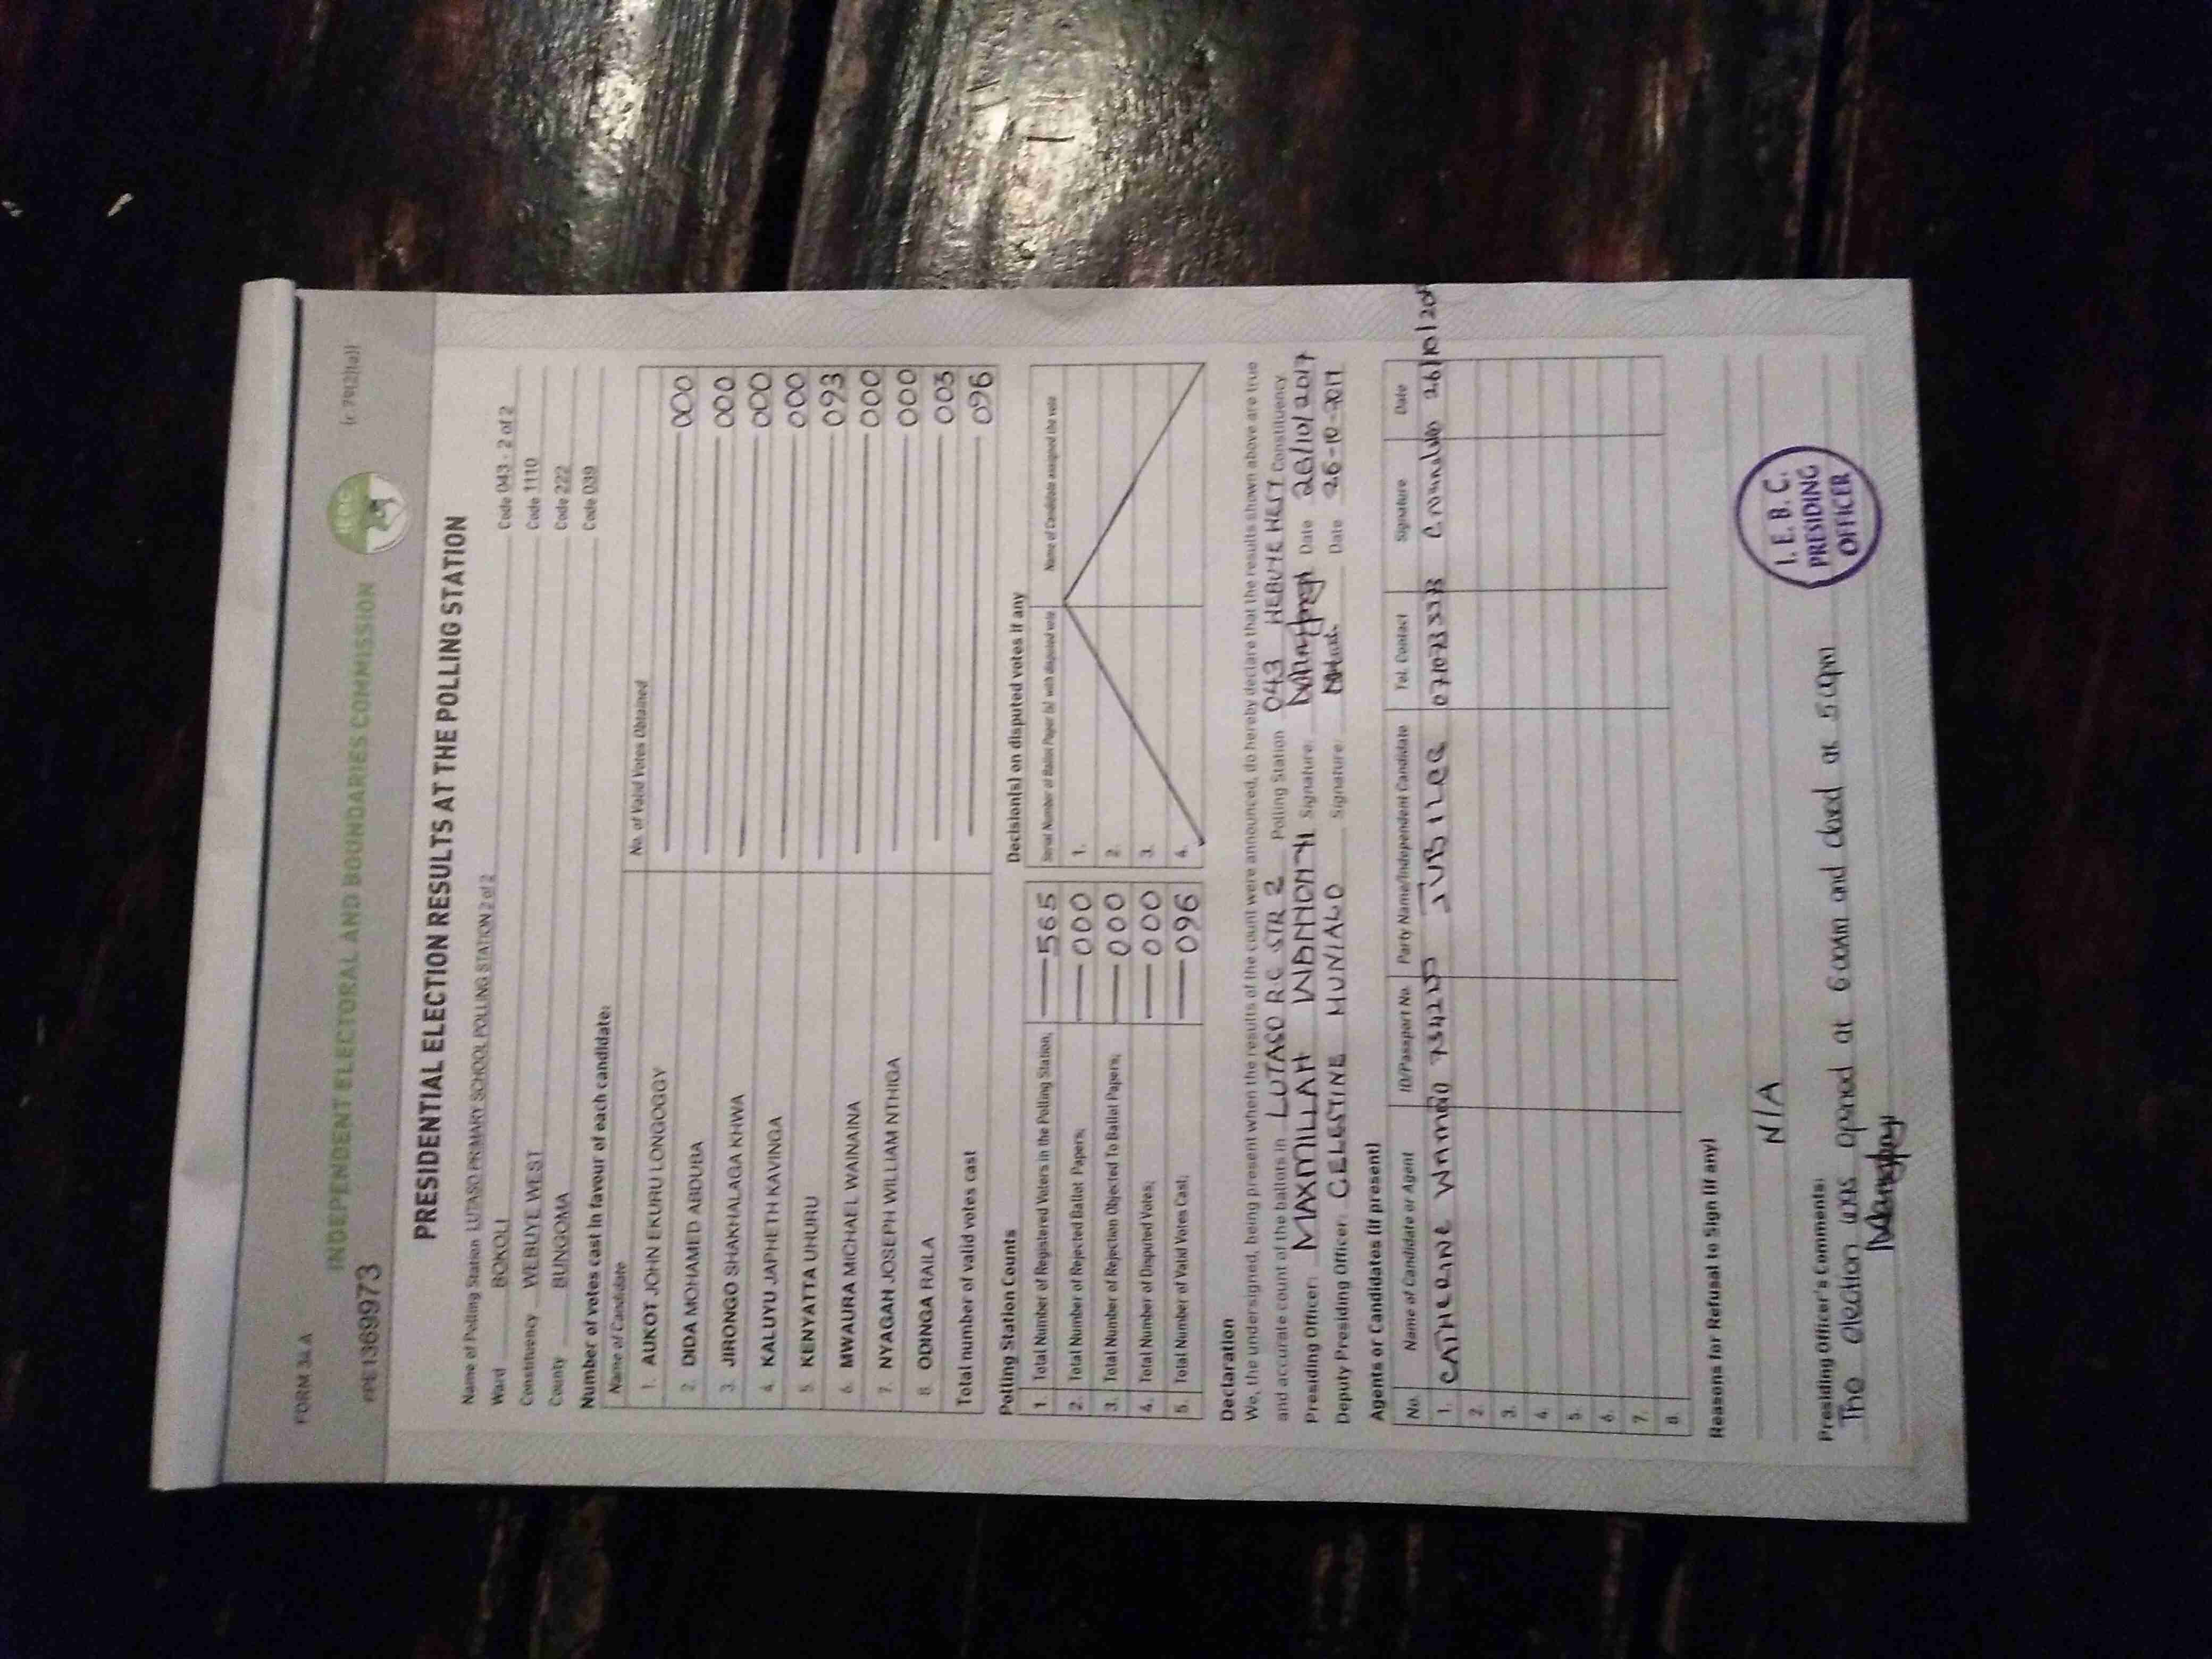 FORM 34A
(r.79(2)(a))
INDEPENDENT ELECTORAL AND BOUNDARIES COMMISSION
IEBC
#PE1369973
PRESIDENTIAL ELECTION RESULTS AT THE POLLING STATION
Name of Polling Station LUTASO PRIMARY SCHOOL POLLING STATION 2 of 2 Code 043 - 2 of 2
Ward BOKOLI Code 1110
Constituency WEBUYE WEST Code 222
County BUNGOMA Code 039
Number of votes cast in favour of each candidate:
Name of Candidate No. of Valid Votes Obtained
1. AUKOT JOHN EKURU LONGOGGY 000
2. DIDA MOHAMED ABDUBA 000
3. JIRONGO SHAKHALAGA KHWA 000
4. KALUYU JAPHETH KAVINGA 000
5. KENYATTA UHURU 093
6. MWAURA MICHAEL WAINAINA 000
7. NYAGAH JOSEPH WILLIAM NTHIGA 000
8. ODINGA RAILA 003
Total number of valid votes cast 096
Polling Station Counts
1. Total Number of Registered Voters in the Polling Station; 565
2. Total Number of Rejected Ballot Papers; 000
3. Total Number of Rejection Objected To Ballot Papers; 000
4. Total Number of Disputed Votes; 000
5. Total Number of Valid Votes Cast; 096
Decision(s) on disputed votes if any
Serial Number of Ballot Paper (s) with disputed vote Name of Candidate assigned the vote
1.
2.
3.
4.
Declaration
We, the undersigned, being present when the results of the count were announced, do hereby declare that the results shown above are true
and accurate count of the ballots in LUTASO RC STR 2 Polling Station 043 WEBUYE WEST Constituency
Presiding Officer: MAXMILLAH Signature: Date 26/10/2017
Deputy Presiding Officer: CELESTINE MUNIALO Signature: Date 26-10-2017
Agents or Candidates (if present)
No. Name of Candidate or Agent ID/Passport No. Party Name/Independent Candidate Tel. Contact Signature Date
1. CATHERINE JUBILEE 26/10/20
2.
3.
4.
5.
6.
7.
8.
Reasons for Refusal to Sign (if any)
N/A
Presiding Officer's Comments:
The election was opened at 6 00AM and closed at 5 00pm
I. E. B. C.
PRESIDING
OFFICER